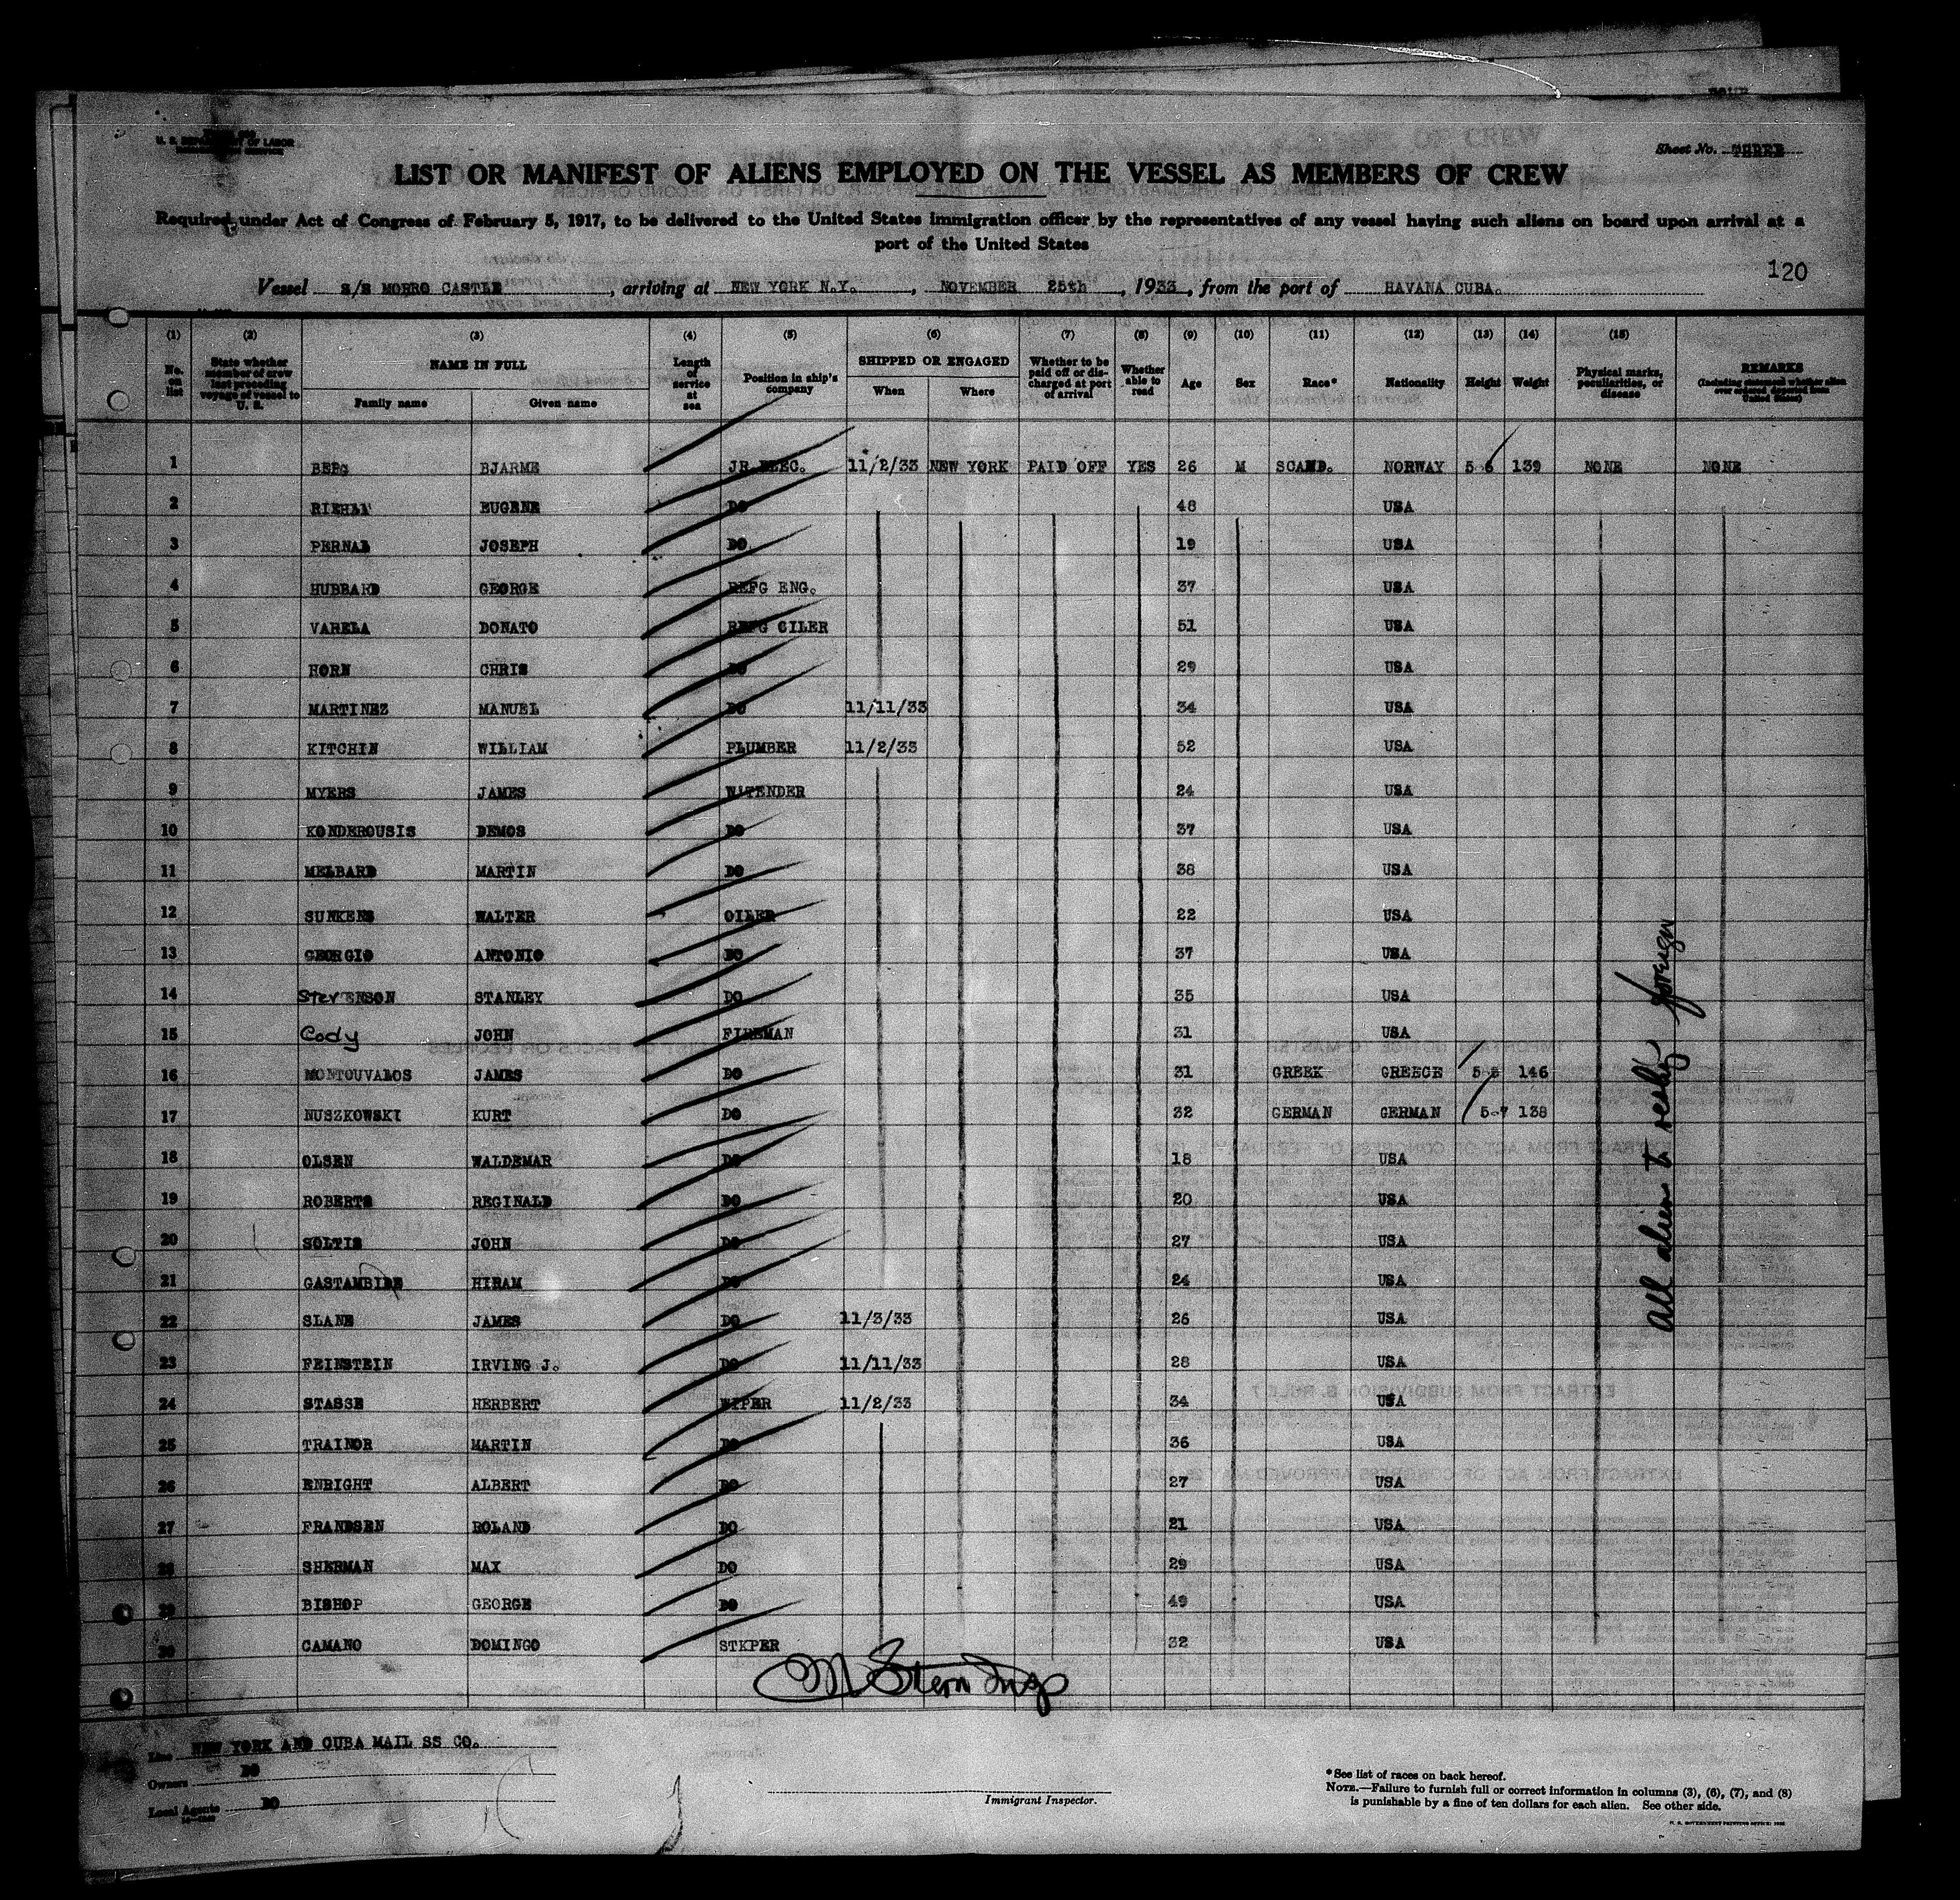 U. S. DEPARTMENT OF LABOR
Sheet No. THREE
LIST OR MANIFEST OF ALIENS EMPLOYED ON THE VESSEL AS MEMBERS OF CREW
Required under Act of Congress of February 5, 1917, to be delivered to the United States immigration officer by the representatives of any vessel having such aliens on board upon arrival at a
port of the United States
120
Vessel S/S MORRO CASTLE, arriving at NEW YORK N.Y., NOVEMBER 25th, 1933, from the port of HAVANA CUBA.
(1) (2) (3) (4) (5) (6) (7) (8) (9) (10) (11) (12) (13) (14) (15)
No. on list State whether member of crew last preceding voyage of vessel to U. S. NAME IN FULL Family name Given name Length of service at sea Position in ship's company SHIPPED OR ENGAGED When Where Whether to be paid off or discharged at port of arrival Whether able to read Age Sex Race* Nationality Height Weight Physical marks, peculiarities, or disease REMARKS (Including statement whether alien ever ordered deported from United States)
1 BERG BJARME JR ELEC. 11/2/33 NEW YORK PAID OFF YES 26 M SCAND. NORWAY 5 6 139 NONE NONE
2 RIEHLY EUGENE DO 48 USA
3 PERNAL JOSEPH DO 19 USA
4 HUBBARD GEORGE REFG ENG. 37 USA
5 VARELA DONATO REFG OILER 51 USA
6 HORN CHRIS DO 29 USA
7 MARTINEZ MANUEL DO 11/11/33 34 USA
8 KITCHIN WILLIAM PLUMBER 11/2/33 52 USA
9 MYERS JAMES W.TENDER 24 USA
10 KONDEROUSIS DEMOS DO 37 USA
11 MELBARD MARTIN DO 38 USA
12 SUNKENS WALTER OILER 22 USA
13 GEORGIO ANTONIO DO 37 USA
14 STEVENSON STANLEY DO 35 USA
15 Cody JOHN FIREMAN 31 USA
16 MONTOUVALOS JAMES DO 31 GREEK GREECE 5 8 146
17 NUSZKOWSKI KURT DO 32 GERMAN GERMAN 5-7 138
18 OLSEN WALDEMAR DO 18 USA
19 ROBERTS REGINALD DO 20 USA
20 SOLTIS JOHN DO 27 USA
21 GASTAMBIDE HIRAM DO 24 USA
22 SLANE JAMES DO 11/3/33 26 USA
23 FEINSTEIN IRVING J. DO 11/11/33 28 USA
24 STASSE HERBERT WIPER 11/2/33 34 USA
25 TRAINOR MARTIN DO 36 USA
26 ENRIGHT ALBERT DO 27 USA
27 FRANDSEN ROLAND DO 21 USA
28 SHERMAN MAX DO 29 USA
29 BISHOP GEORGE DO 49 USA
30 CAMANO DOMINGO STKPER 32 USA
all aliens to reship foreign
M Stern Insp
Line NEW YORK AND CUBA MAIL SS CO.
Owners DO
Local Agents DO
Immigrant Inspector.
*See list of races on back hereof.
NOTE.—Failure to furnish full or correct information in columns (3), (6), (7), and (8)
is punishable by a fine of ten dollars for each alien. See other side.
U. S. GOVERNMENT PRINTING OFFICE